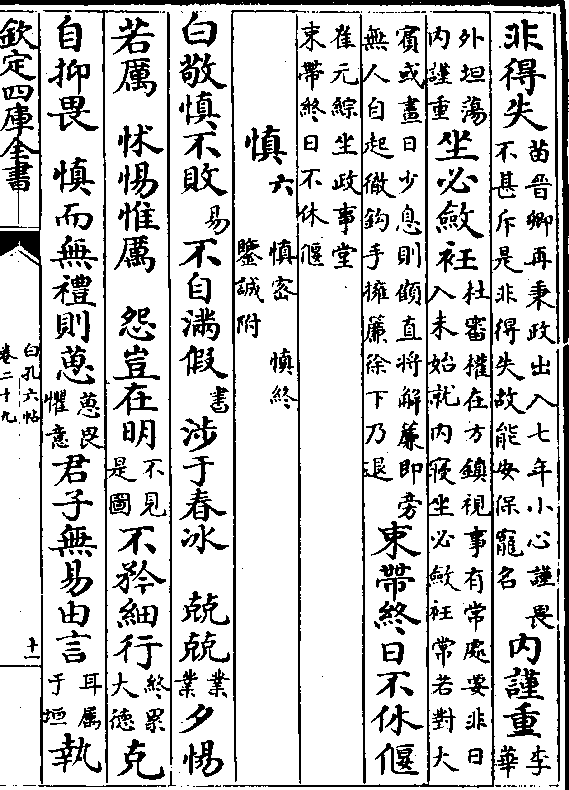 非得失苗晉卿再秉政出入七年小心謹畏不甚斥是非得失故能安保寵名内謹重李華
外坦蕩内謹重坐必斂衽杜審權在方鎮視事有常處要非日入未始就内寢坐必斂衽常若對大
賓或晝日少息則頗直將解簾即旁無人自起徹鈎手擁簾徐下乃退束帶終日不休偃
崔元綜坐政事堂束帶終日不休偃
慎六慎密 慎終鑒誡附
白敬慎不敗易不自滿假書涉于春冰 兢兢業業夕惕
若厲 怵惕惟厲 怨豈在明不見是圖不矜細行終累大德克
自抑畏 慎而無禮則葸葸畏懼意君子無易由言耳屬于垣執
欽定四庫全書
白孔六帖
卷二十九
十一